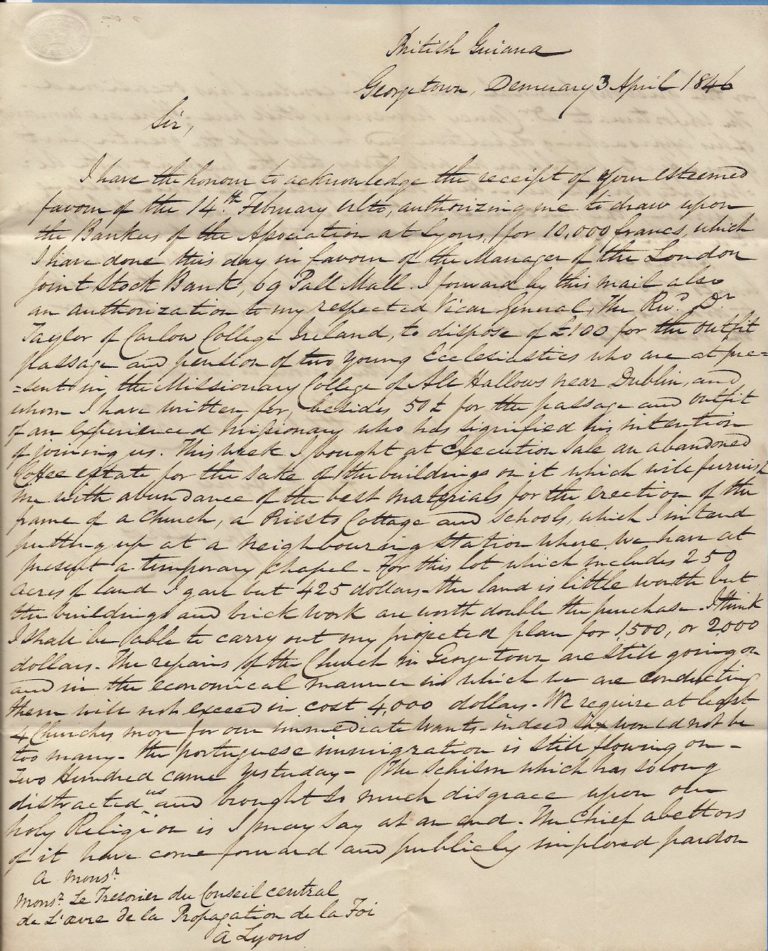 British Guiana
Georgetown, Demerary 3 April 1846
Sir,
I have the honour to acknowledge the receipt of your esteemed
favour of the 14th February ulto, authorizing me to draw upon
the Bankers of the Association at Lyons, for 10,000 francs, which
I have done this day in favour of the Manager of the London
Joint Stock Bank, 69 Pall Mall. I forward by this mail also
an authorization to my respected Vicar General, The Revd. Dr
Taylor of Carlow College Ireland, to dispose of £100 for the outfit
passage and pension of two young Ecclesiastics who are at pre=
=sent in the Missionary College of All Hallows near Dublin, and
whom I have written for, besides 50£ for the passage and outfit
of an experienced missionary who has signified his intention
of joining us. This week I bought at Execution Sale an abandoned
Coffee estate for the sake of the buildings on it which will furnish
me with abundance of the best materials for the erection of the
frame of a Church, a Priests Cottage and Schools, which I intend
putting up at a neighbouring station where we have at
present a temporary Chapel - for this lot which includes 250
acres of land I gave but 425 dollars - the land is little worth but
the buildings and brick work are worth double the purchase - I think
I shall be able to carry out my projected plan for 1500, or 2000
dollars. The repairs of the Church in Georgetown are still going on
and in the economical manner in which we are conducting
them will not exceed in cost 4,000 dollars. We require at least
4 Churches more for our immediate wants - indeed six would not be
too many - the portuguese immigration is still flowing on -
Two Hundred came yesterday - The Schism which has so long
distracted us and brought so much disgrace upon our
holy Religion is I may say at an end. The Chief abettors
of it have come forward and publicly implored pardon
A Monsr.
Monsr. Le Tresorier du Conseil central
de L'œvre de la Propagation de la Foi
à Lyons